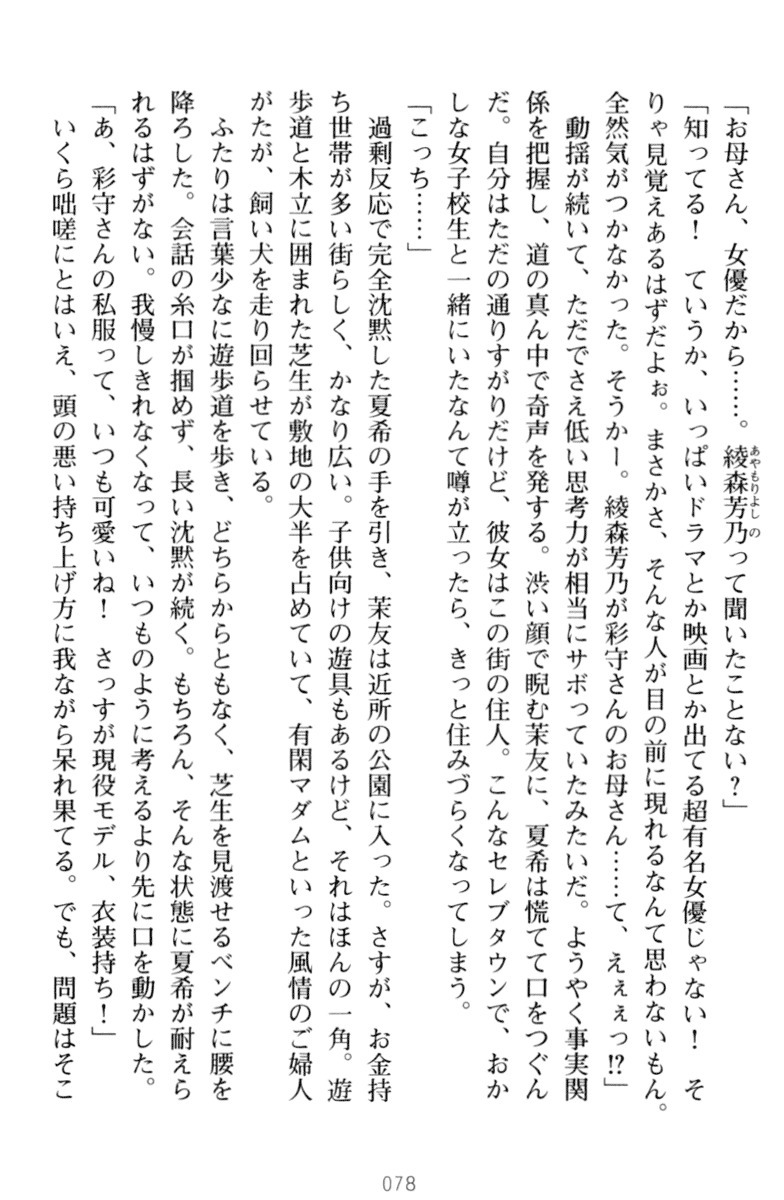 「お母さん、女優だから……。綾森芳乃って聞いたことない？」
あやもりよしの
「知ってる！　ていうか、いっぱいドラマとか映画とか出てる超有名女優じゃない！　そ
りゃ見覚えあるはずだよぉ。まさかさ、そんな人が目の前に現れるなんて思わないもん。
全然気がつかなかった。そうかー。綾森芳乃が彩守さんのお母さん……て、えぇぇっ!?」
　動揺が続いて、ただでさえ低い思考力が相当にサボっていたみたいだ。ようやく事実関
係を把握し、道の真ん中で奇声を発する。渋い顔で睨む茉友に、夏希は慌てて口をつぐん
だ。自分はただの通りすがりだけど、彼女はこの街の住人。こんなセレブタウンで、おか
しな女子校生と一緒にいたなんて噂が立ったら、きっと住みづらくなってしまう。
「こっち……」
　過剰反応で完全沈黙した夏希の手を引き、茉友は近所の公園に入った。さすが、お金持
ち世帯が多い街らしく、かなり広い。子供向けの遊具もあるけど、それはほんの一角。遊
歩道と木立に囲まれた芝生が敷地の大半を占めていて、有閑マダムといった風情のご婦人
がたが、飼い犬を走り回らせている。
　ふたりは言葉少なに遊歩道を歩き、どちらからともなく、芝生を見渡せるベンチに腰を
降ろした。会話の糸口が掴めず、長い沈黙が続く。もちろん、そんな状態に夏希が耐えら
れるはずがない。我慢しきれなくなって、いつものように考えるより先に口を動かした。
「あ、彩守さんの私服って、いつも可愛いね！　さっすが現役モデル、衣装持ち！」
　いくら咄嗟にとはいえ、頭の悪い持ち上げ方に我ながら呆れ果てる。でも、問題はそこ
078